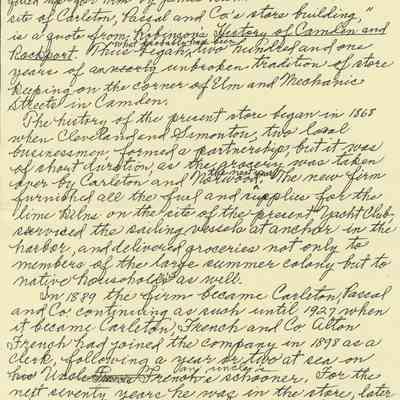 site of Carleton, Pascal and Co's store building,"
is a quote from Robinson's History of Camden and
Rockport. Thus began, what probably has been two hundred and one
years of an nearly unbroken tradition of store
keeping on the corner of Elm and Mechanic
Streets in Camden.
The history of the present store began in 1868
when Cleveland and Simonton, two local
businessmen formed a partnership, but it was
of short duration, as the grocery was taken
over by Carleton and Norwood the next year. The new firm
furnished all the fuel and supplies for the
lime kilns on the site of the present Yacht Club,
serviced the sailing vessels at anchor in the
harbor, and delivered groceries not only to
members of the large summer colony but to
native households as well.
In 1899 the firm became Carleton, Pascal
and Co continuing as such until 1927 when
it became Carleton, French and Co Alton
French had joined the company in 1898 as a
clerk, following a year or two at sea on
his Uncle French's schooner. For the
next seventy years he was in the store, later